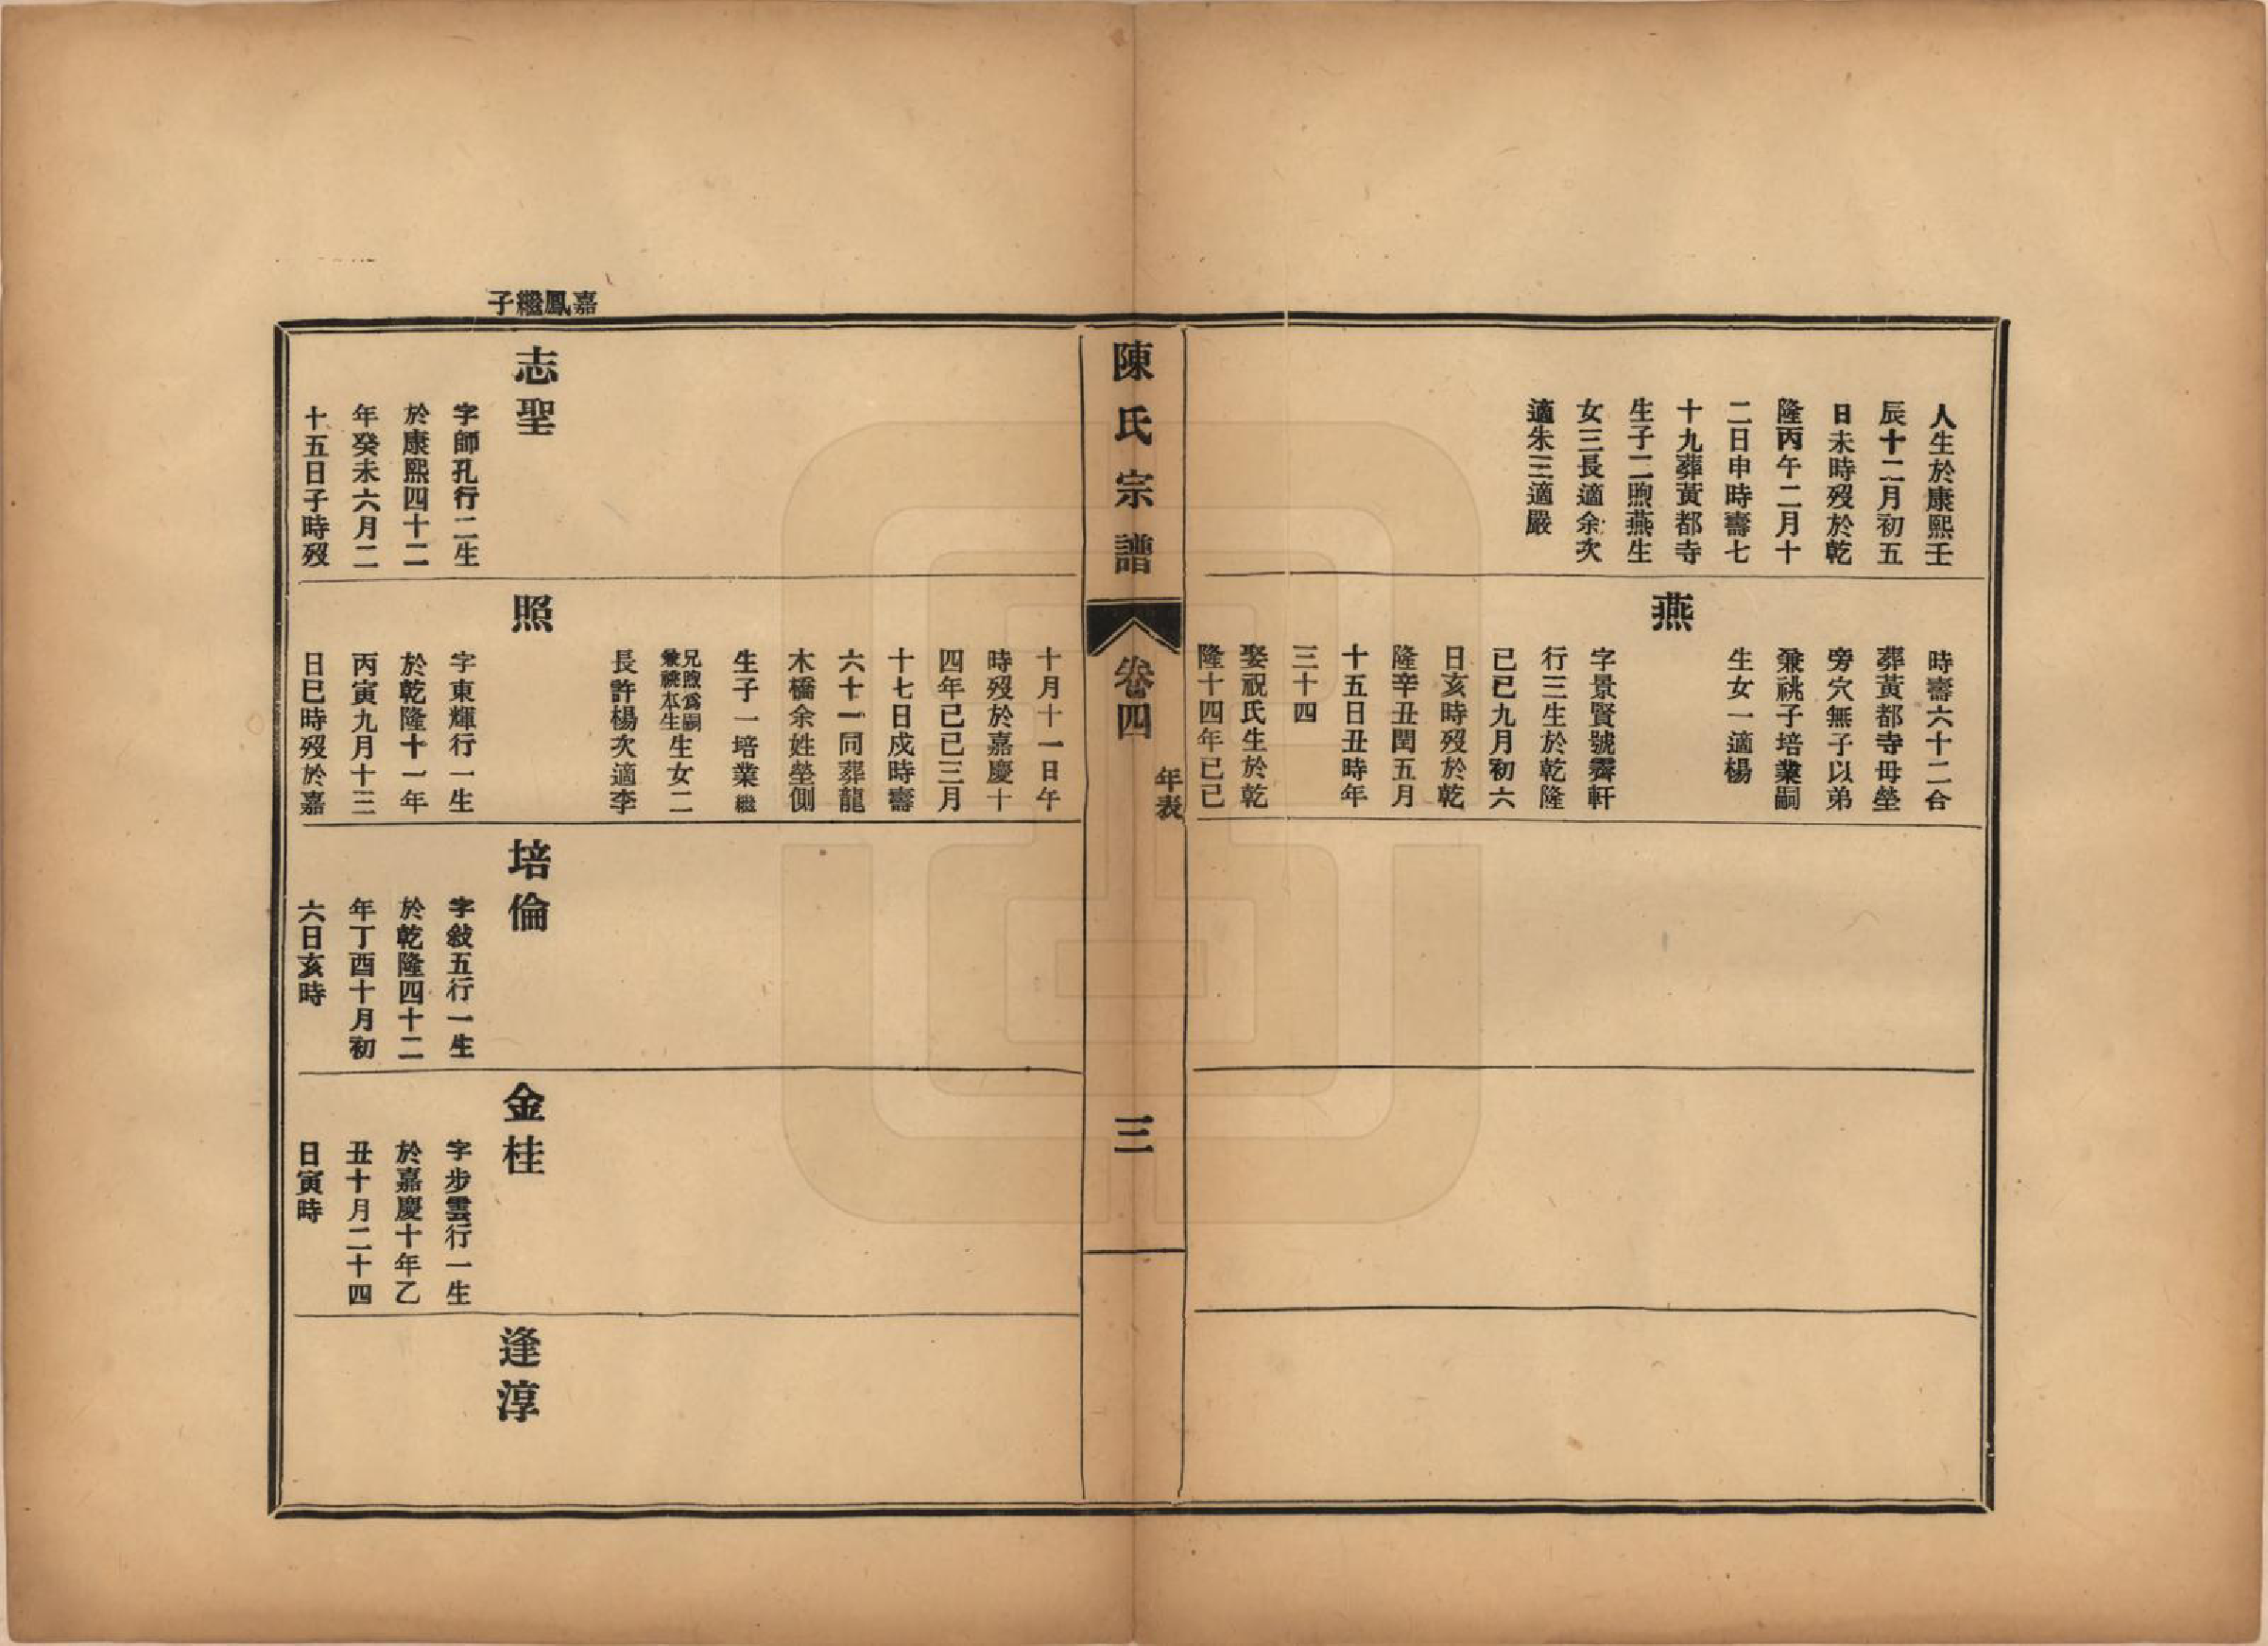 人生於康熙壬
辰十二月初五
日未時歿於乾
隆丙午二月十
二日申時壽七
十九葬黃都寺
生子二煦燕生
女三長適余次
適朱三適嚴
時壽六十二合
葬黃都寺毋塋
旁穴無子以弟
兼祧子培業嗣
生女一適楊
燕
字景賢號霽軒
行三生於乾隆
已巳九月初六
日亥時歿於乾
隆辛丑閏五月
十五日丑時年
三十四
娶祝氏生於乾
隆十四年已巳
陳氏宗譜
卷四
年表
三
十月十一日午
時歿於嘉慶十
四年已巳三月
十七日戌時壽
六十一同葬龍
木橋余姓塋側
生子一培業繼
兄煦爲嗣
兼祧本生
生女二
長許楊次適李
嘉鳳繼子
志聖
字師孔行二生
於康熙四十二
年癸未六月二
十五日子時歿
照
字東輝行一生
於乾隆十一年
丙寅九月十三
日巳時歿於嘉
培倫
字敍五行一生
於乾隆四十二
年丁酉十月初
六日亥時
金桂
字步雲行一生
於嘉慶十年乙
丑十月二十四
日寅時
逢淳